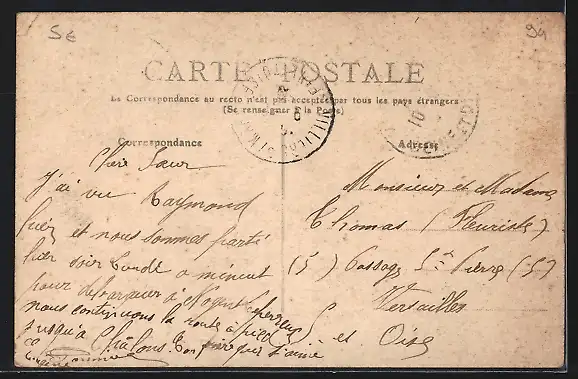 S E
94
CARTE POSTALE
La Correspondance au recto n'est pas acceptée par tous les pays étrangers
(Se renseigner à la Poste)
Correspondance
Adresse
Chère Sœur
J'ai vu Raymond
hier et nous sommes parti
hier soir à minuit
pour débarquer à Nogent
nous continuons la route à pied
jusqu'à Châlons. Ton frère qui t'aime
Monsieur et Madame
Thomas (Fleuriste)
(5) Passage St Pierre (5)
Versailles
S. et Oise